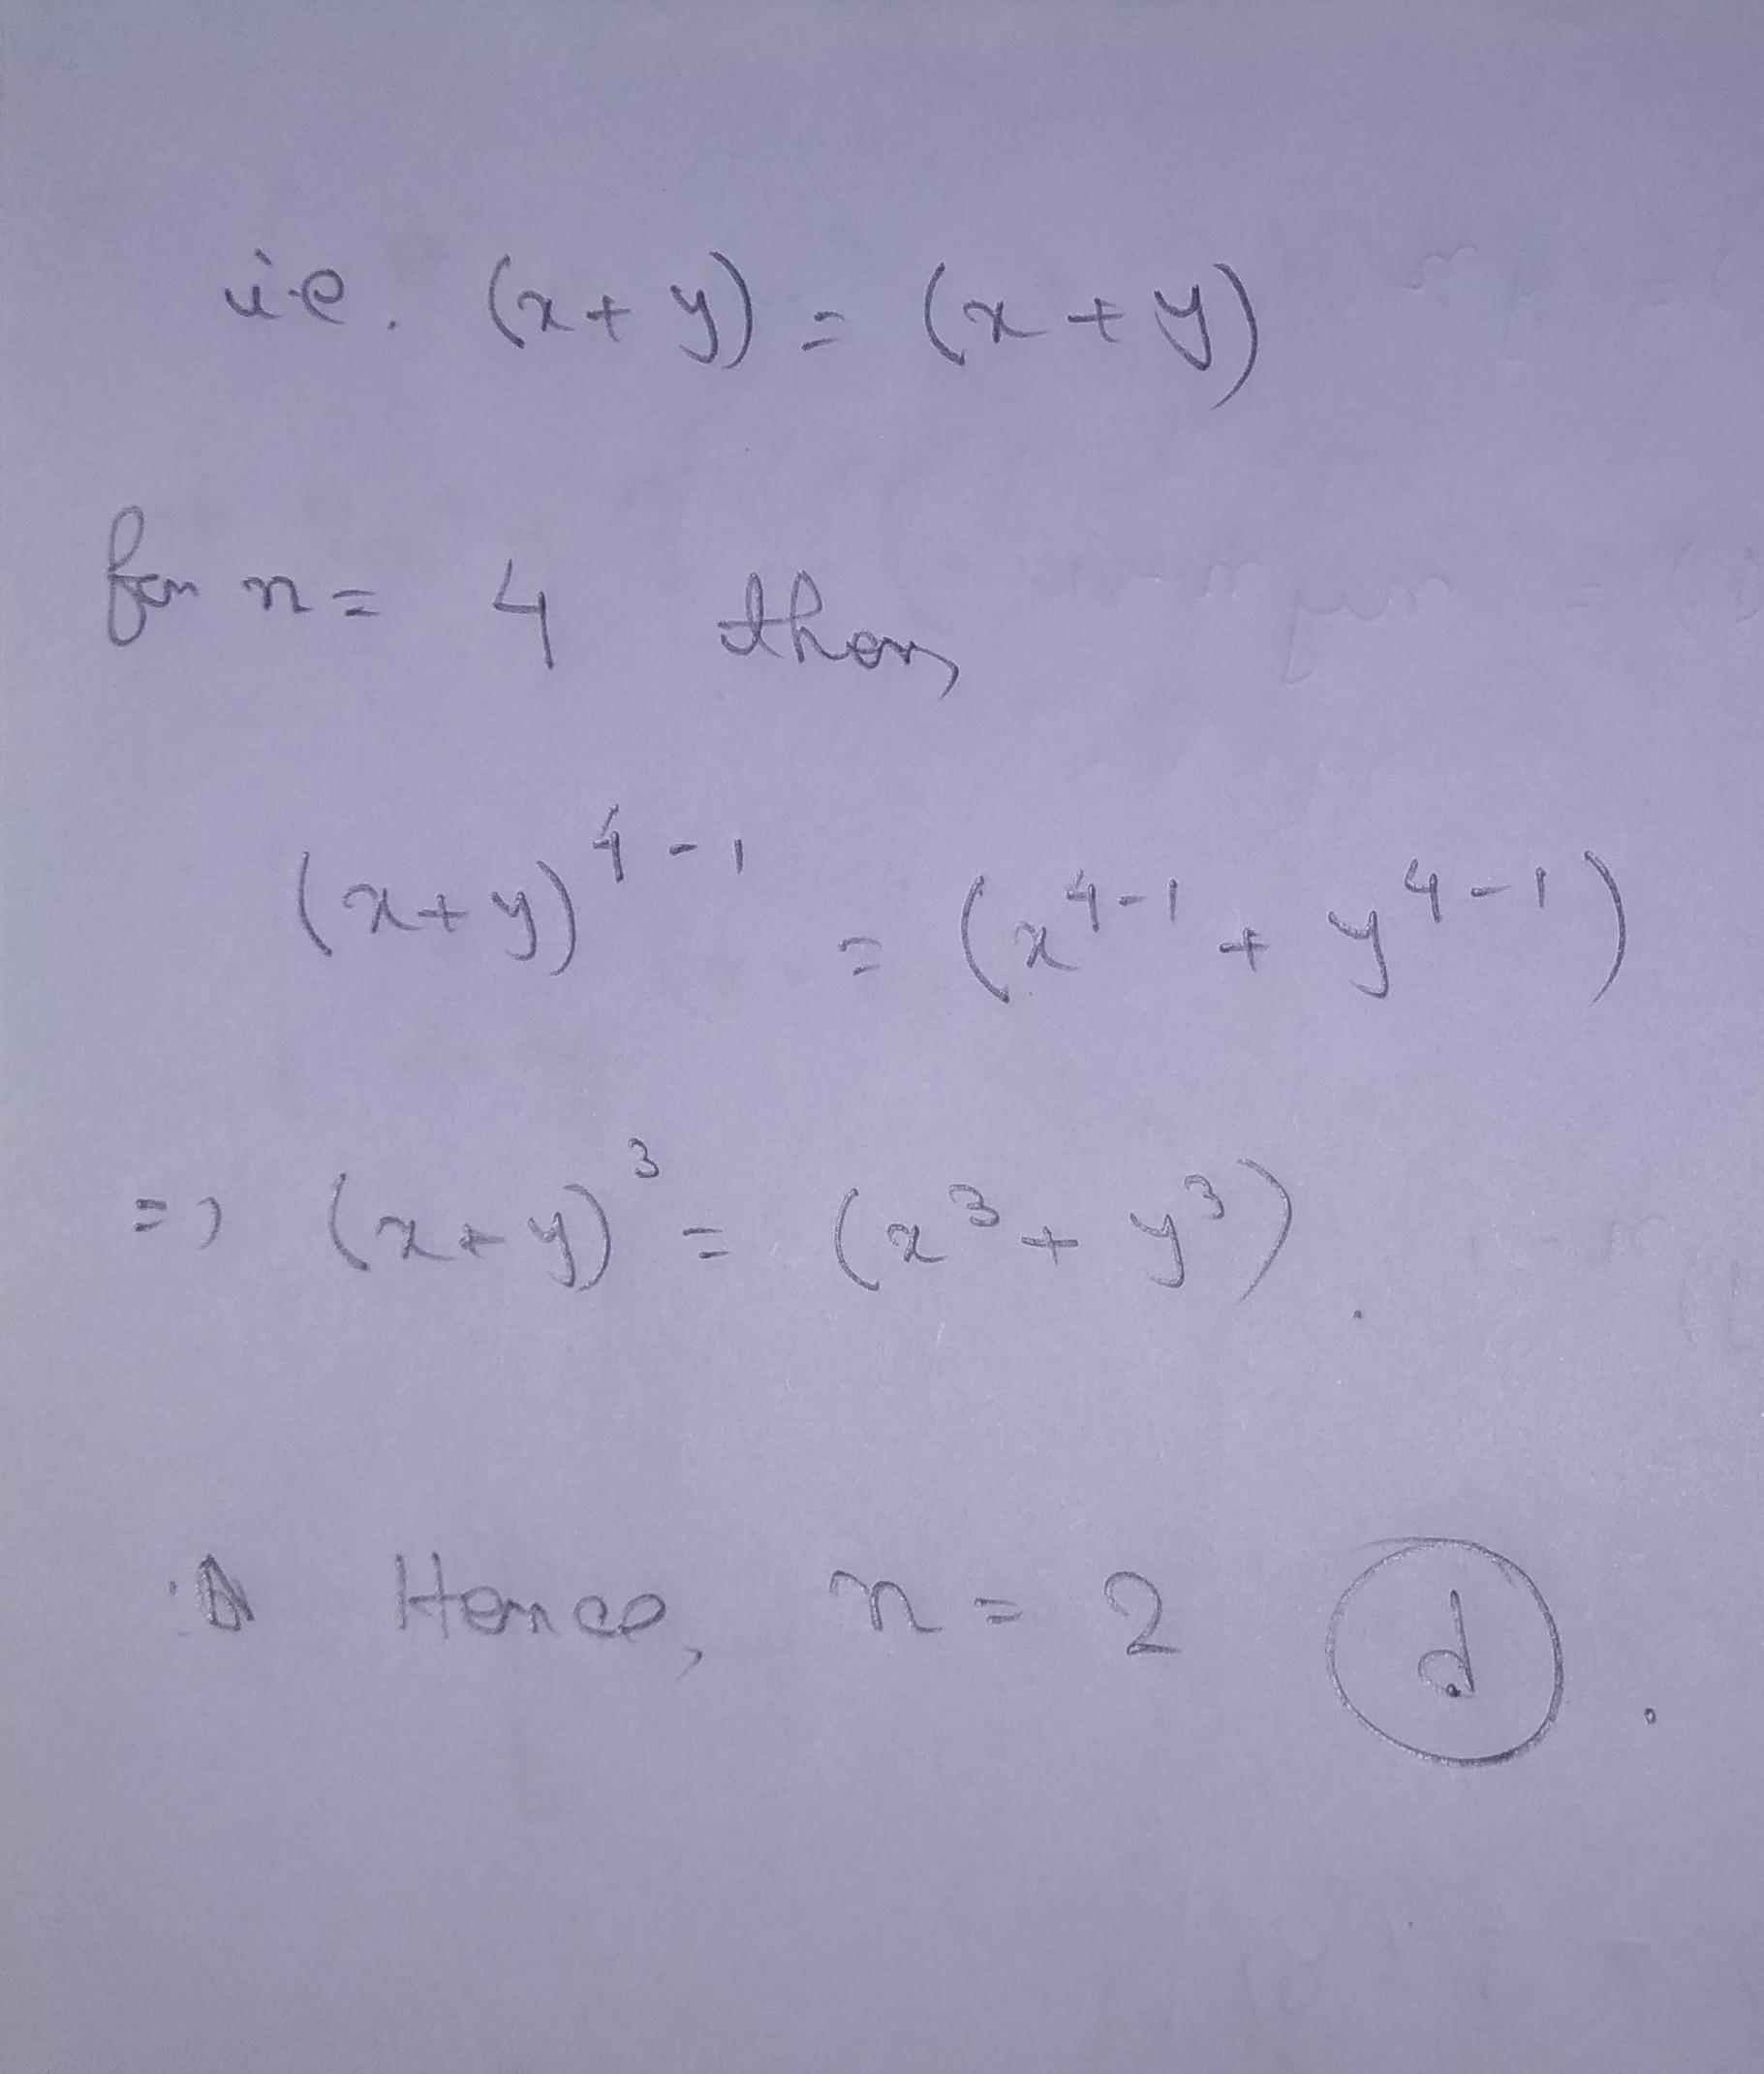 i.e. (x + y) = (x + y)
for n = 4 then,
(x+y)^{4-1} = (x^{4-1} + y^{4-1})
=> (x+y)^3 = (x^3 + y^3).
Hence, n = 2 (d).